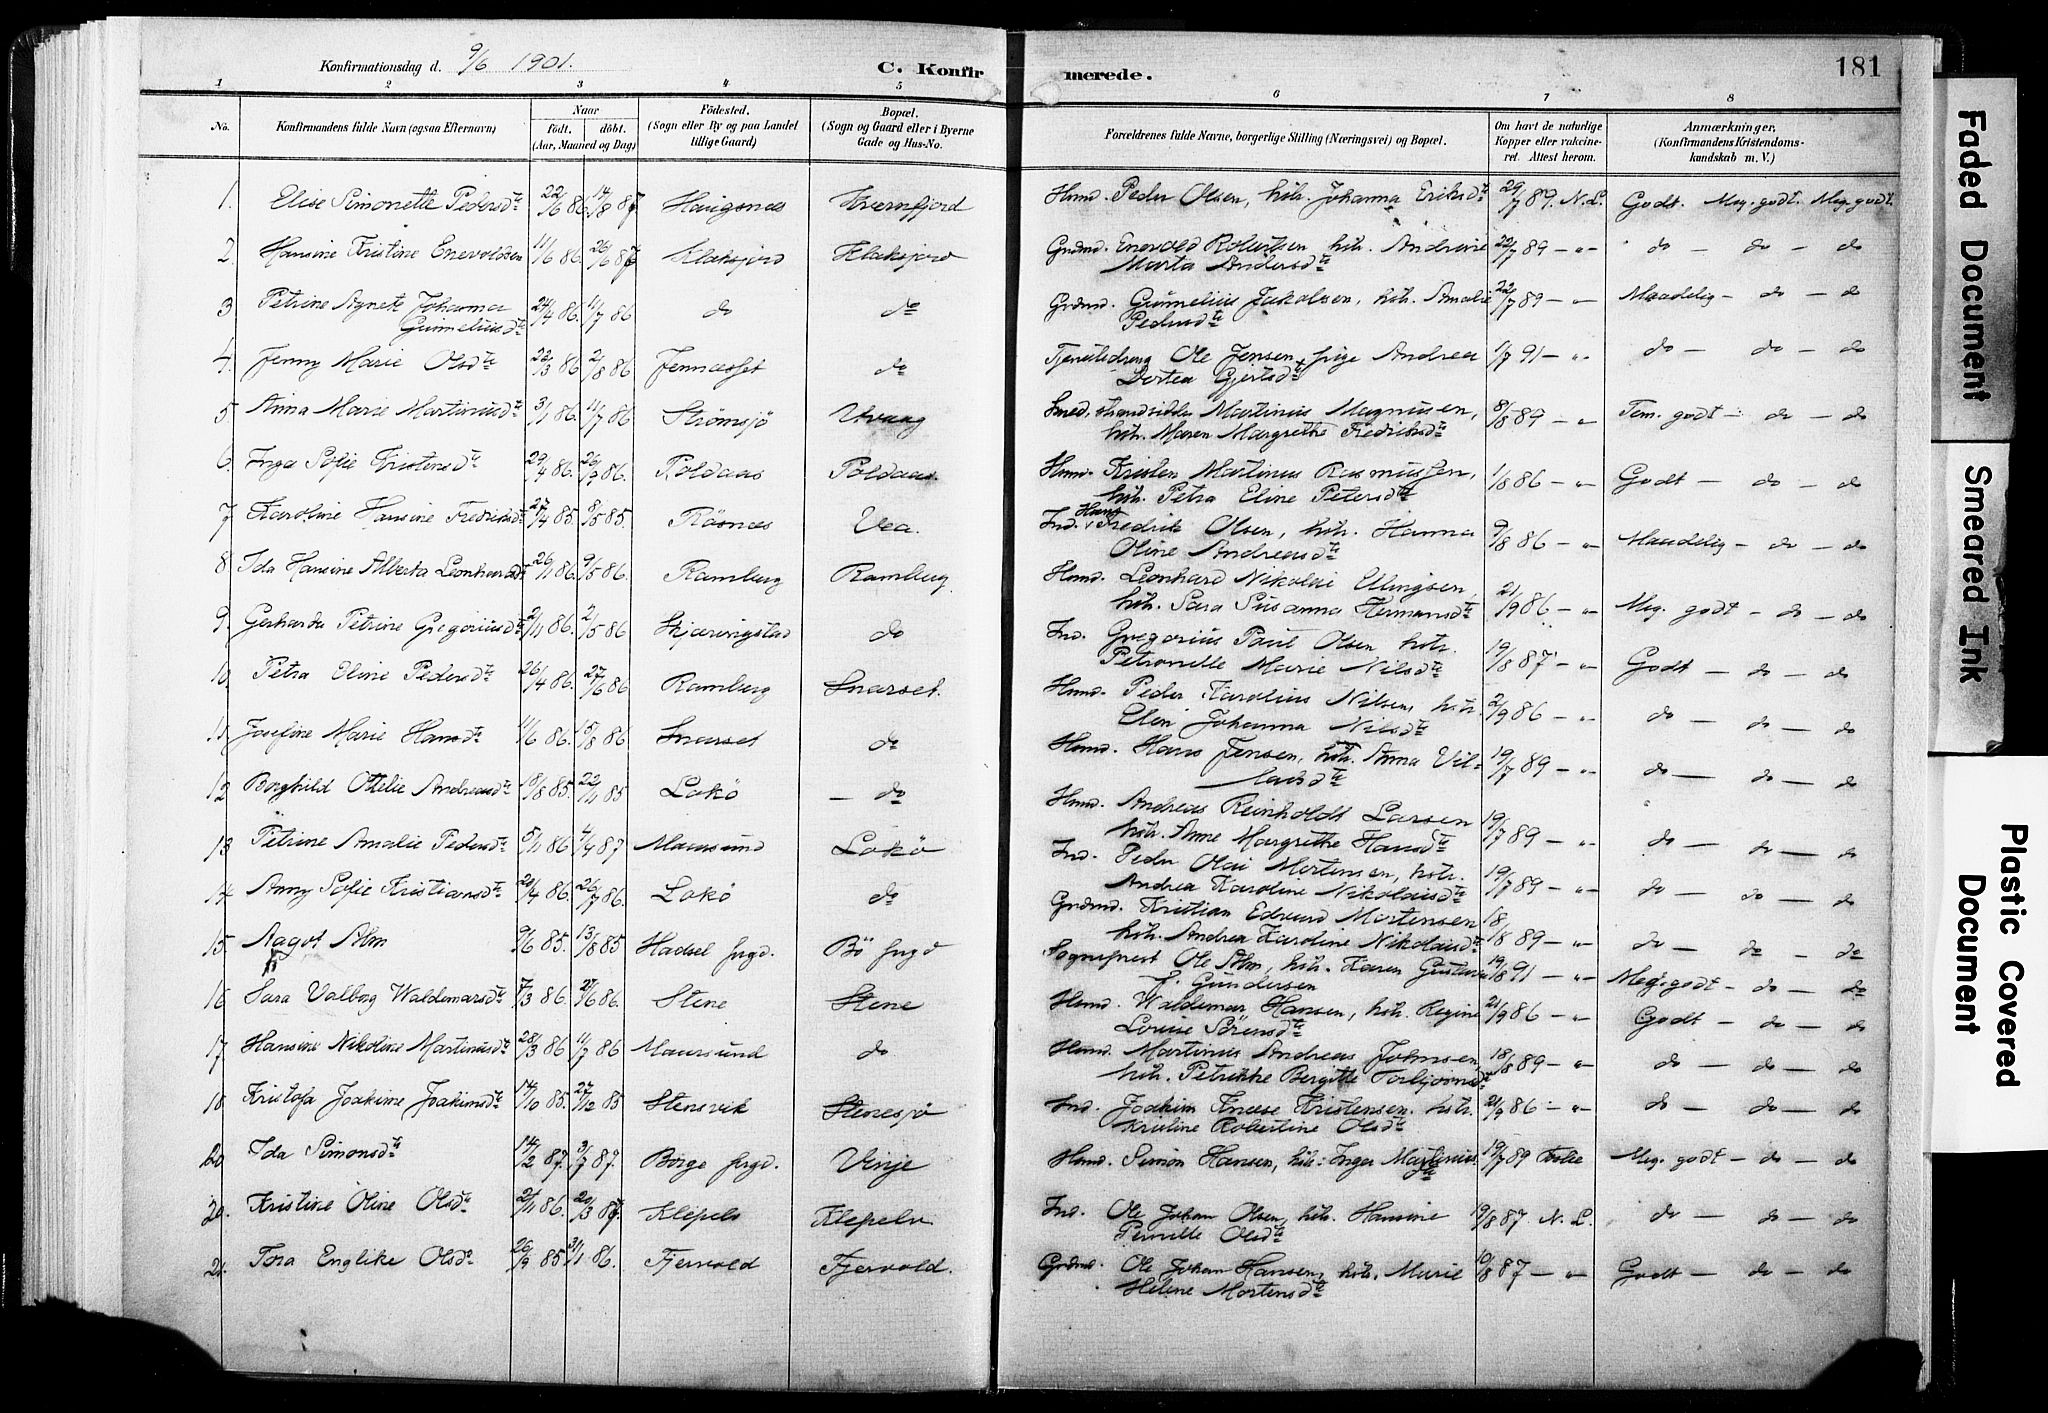 Konfirmationsdag d. 9/6 1901.
C. Konfirmerede.
181
1 2 3 4 5 6 7 8
No. Konfirmandens fulde Navn (ogsaa Efternavn) Naar født. døbt. (Aar, Maaned og Dag) Fødested. (Sogn eller By og paa Landet tillige Gaard) Bopæl. (Sogn og Gaard eller i Byerne Gade og Hus-No. Forældrenes fulde Navne, borgerlige Stilling (Næringsvei) og Bopæl. Om havt de naturlige Kopper eller vakcineret. Attest herom. Anmærkninger, (Konfirmandens Kristendomskundskab m. V.)
1. Elise Simonette Pedersd. 22/6 86. 14/8 87 Haugsnes Kvernfjord Hmd. Peder Olsen, hstr. Johanna Eriksd. 29/7 89. N.L. Godt. Meg. godt. Meg. godt.
2. Hansine Kristine Enevoldsen 11/6 86. 26/6 87 Klaksjord Klaksjord Grdmd. Enevold Robertsen hstr. Andrine Marta Andersd. 22/7 89 — " do — do — do
3 Petrine Agnete Johanna Gunneliusd. 24/4 86. 11/7 86 do do Grdmd. Gunnelius Jakobsen, hstr. Amalie Pedersd. 22/7 89 — " Maadelig — do — do
4. Jenny Marie Olsd. 22/3 86 2/8 86 Jennesset do Tjenestedreng Ole Jensen + pige Andrea Dortea Gjertsd. 1/7 91 — " do — do — do
5. Anna Marie Martinusd. 3/1 86. 11/7 86 Strømsjø Uvaag Smed, strandsidder Martinus Magnusen, hstr. Maren Margrethe Fredriksd. 8/8 89 — " Tem. godt — do — do
6. Inga Sofie Kristensd. 29/4 86. Poldaas Poldaas. Hmd. Kristen Martinus Rasmussen, hstr. Petra Eline Petersd. 1/8 86 — " Godt — do — do
7 Karoline Hansine Fredriksd. 27/4 85. 8/5 85. Røsnes Vea. Ind. Hans Fredrik Olsen, hstr. Hanna Oline Andreasd. 9/8 86 — " Maadelig — do — do
8 Ida Hansine Alberta Leonhardsd. 26/1 86. 9/5 86. Ramberg Ramberg Hmd. Leonhard Nikolai Ellingsen, hstr. Sara Susanna Hermansd. 21/9 86 — " Meg. godt — do — do
9. Gerharda Petrine Gregoriusd. 2/11 86. 2/5 86 Skjæringstad do Ind. Gregorius Paul Olsen hstr. Petronelle Marie Nilsd. 19/8 87 — " Godt — do — do
10. Petra Eline Pedersd. 26/4 86. 27/6 86 Ramberg Snarset. Hmd. Peder Karolius Nilsen, hstr. Elen Johanna Nilsd. 2/9 86 — " do — do — do
11. Josefine Marie Hansd. 11/6 86. 15/8 86 Snarset do Hmd. Hans Jensen, hstr. Anna Villadsd. 19/7 89 — " do — do — do
12 Borghild Ottelie Andreasd. 18/8 85. 22/11 85 Lokø — do Hmd. Andreas Reinholdt Larsen hstr. Anne Margrethe Hansd. 19/7 89 — " do — do — do
13 Petrine Amalie Pedersd. 5/11 86 4/4 87 Maursund Lokø Ind. Peder Olai Mortensen, hstr. Andrea Karoline Nikolaisd. 19/7 89 — " do — do — do
14 Anny Sofie Kristiansd. 20/4 86. 26/7 86. Lokø do Grdmd. Kristian Edvard Mortensen hstr. Andrea Karoline Nikolaisd. 18/8 89 — " do — do — do
15. Aagot Alm 9/6 85. 13/8 85 Hadsel prgd. Bø prgd Sogneprest Ole Alm, hstr. Karen Gustava f. Gundersen 19/8 91 — " Meg. godt — do — do
16 Sara Valborg Waldemarsd. 7/3 86. 27/6 86. Stene Stene Hmd. Waldemar Hansen, hstr. Regine Louise Sørensd. 21/9 86 — " Godt — do — do
17 Hansine Nikoline Martinusd. 28/3 86 11/7 86 Maursund do Hmd. Martinus Andreas Johnsen, hstr. Petrikke Bergitte Torbjørnsd. 18/8 89 — " do — do — do
18 Kristofa Joakime Joakimsd. 14/10 85. 27/12 85 Stensvik Stenesjø Ind. Joakim Knæse Kristensen hstr. Kristine Robertine Olsd. 21/9 86 — " do — do — do
20 Ida Simonsd. 14/2 87. 3/7 87. Borge prgd. Vinje Hmd. Simon Hansen, hstr: Inger Martinusd. 19/7 89 Meg. godt — do — do
20. Kristine Oline Olsd. 21/11 86. 20/3 87. Klepels Klepels Ind. Ole Johan Olsen, hstr. Hansine Pernille Olsd. 19/8 87 N.L. do — do — do
21. Tora Englike Olsd. 26/9 85 31/1 86. Fjervold Fjervold. Grdmd. Ole Johan Hansen, hstr. Marie Helene Mortensd. 10/8 87 — " Godt — do — do
Faded Document
Smeared Ink
Plastic Covered Document